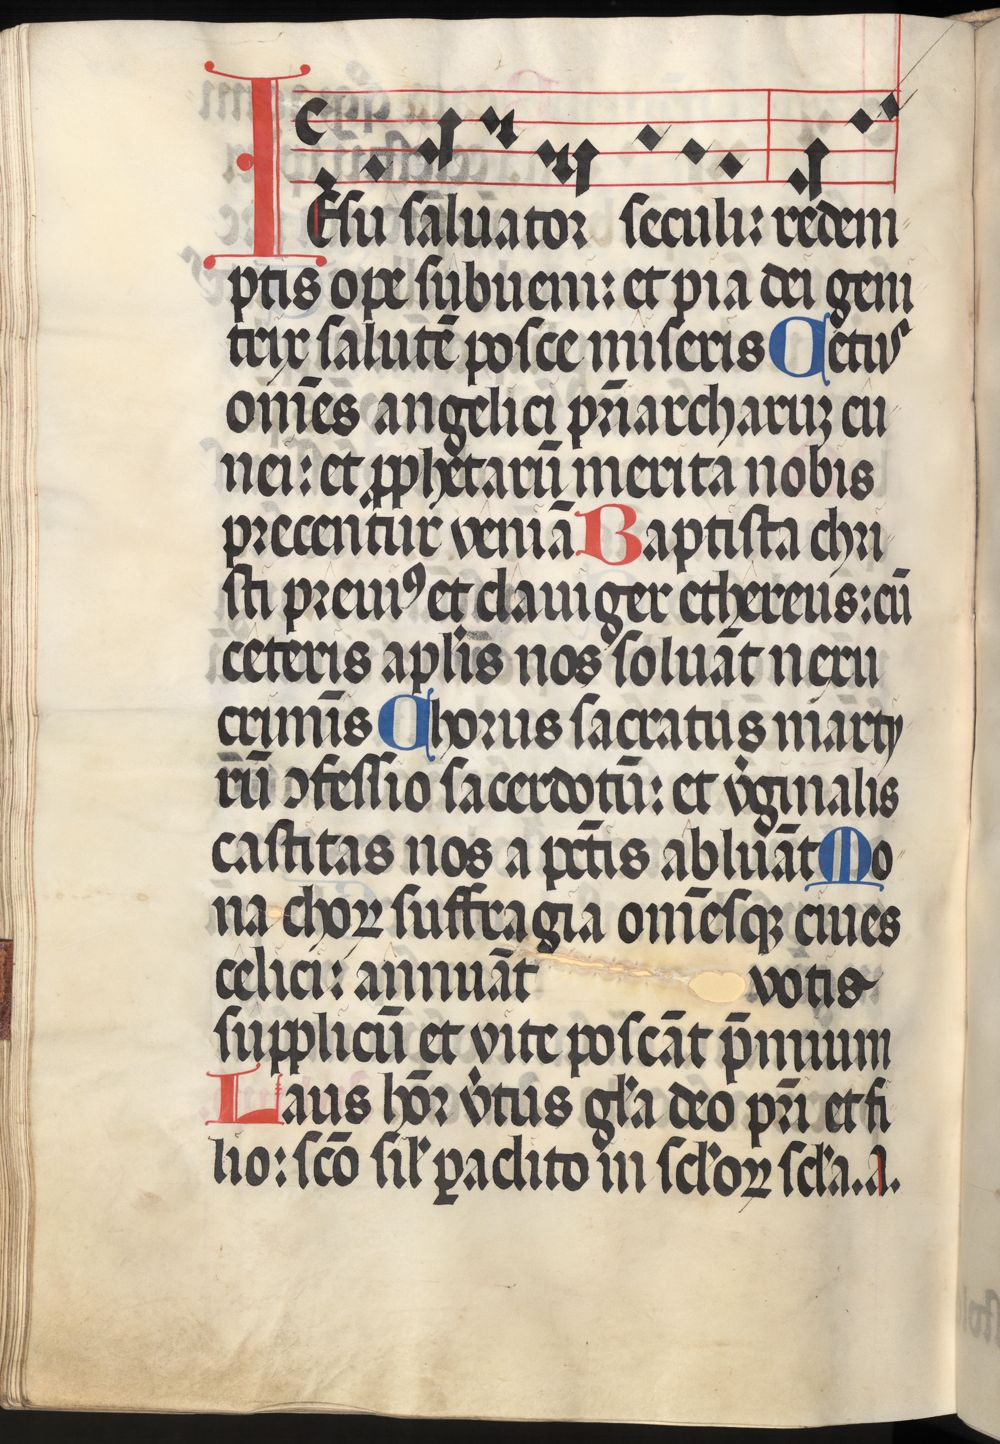 IEsu saluator seculi: redem
ptis ope subueni: et pia dei geni
trix salutē posce miseris Cetus
om̄es angelici pr̄iarcharuꝫ cu
nei: et ꝓphetarū merita nobis
precentur veniā Baptista chri
sti preuiꝰ et clauiger ethereus: cū
ceteris apl̄is nos soluāt nexu
crimīs Chorus sacratus marty
rū ↄfessio sacerdotū: et v̓ginalis
castitas nos a pc̄tis abluāt Mo
nachoꝝ suffragia om̄esqꝫ ciues
celici: annuāt votis
supplicū et vite poscāt p̄mium
Laus hōr v̓tus gl̓a deo pr̄i et fi
lio: scō sil̓ ꝑaclito in scl̓oꝝ scl̓a. a.